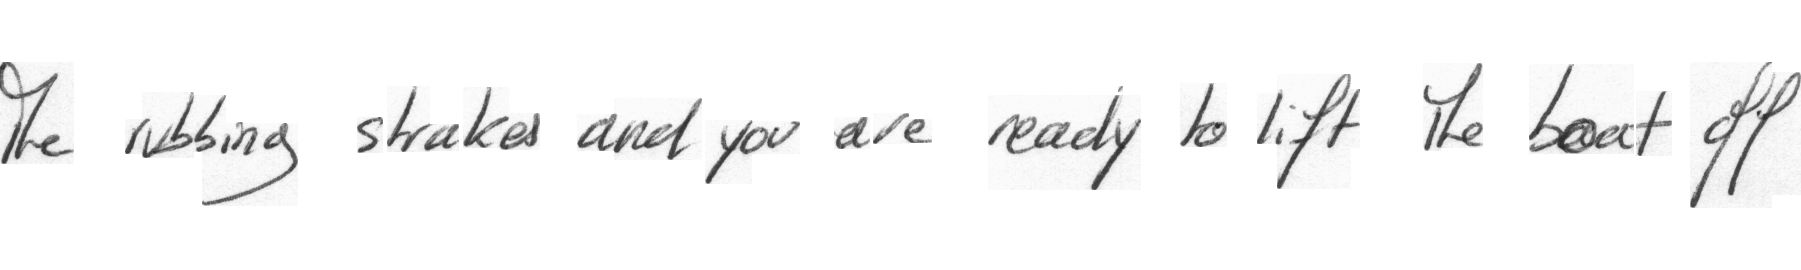 The rubbing strakes and you are ready to lift the boat off